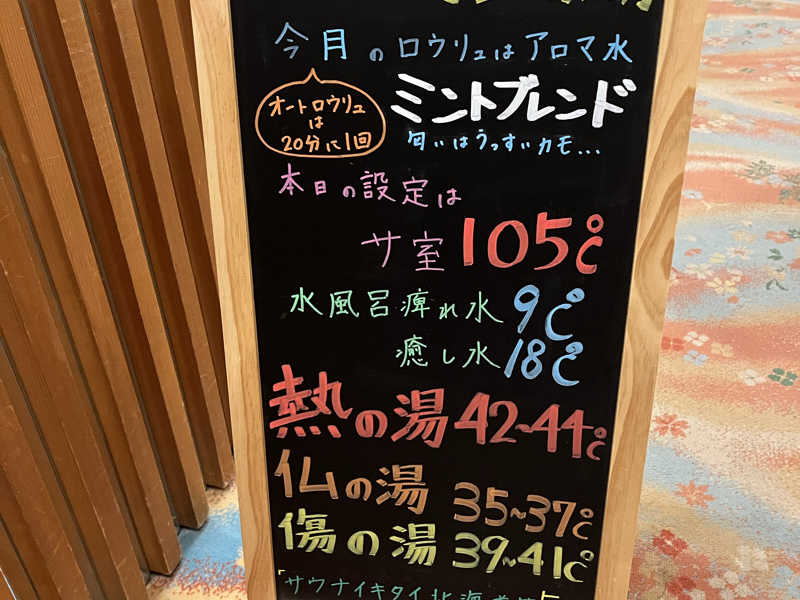 今月のロウリュはアロマ水
オートロウリュ
は
20分に1回
ミントブレンド
匂いはうっすいカモ...
本日の設定は
サ室 105℃
水風呂痺れ水 9℃
癒し水 18℃
熱の湯 42~44℃
仏の湯 35~37℃
傷の湯 39~41℃
「サウナイキタイ北海道